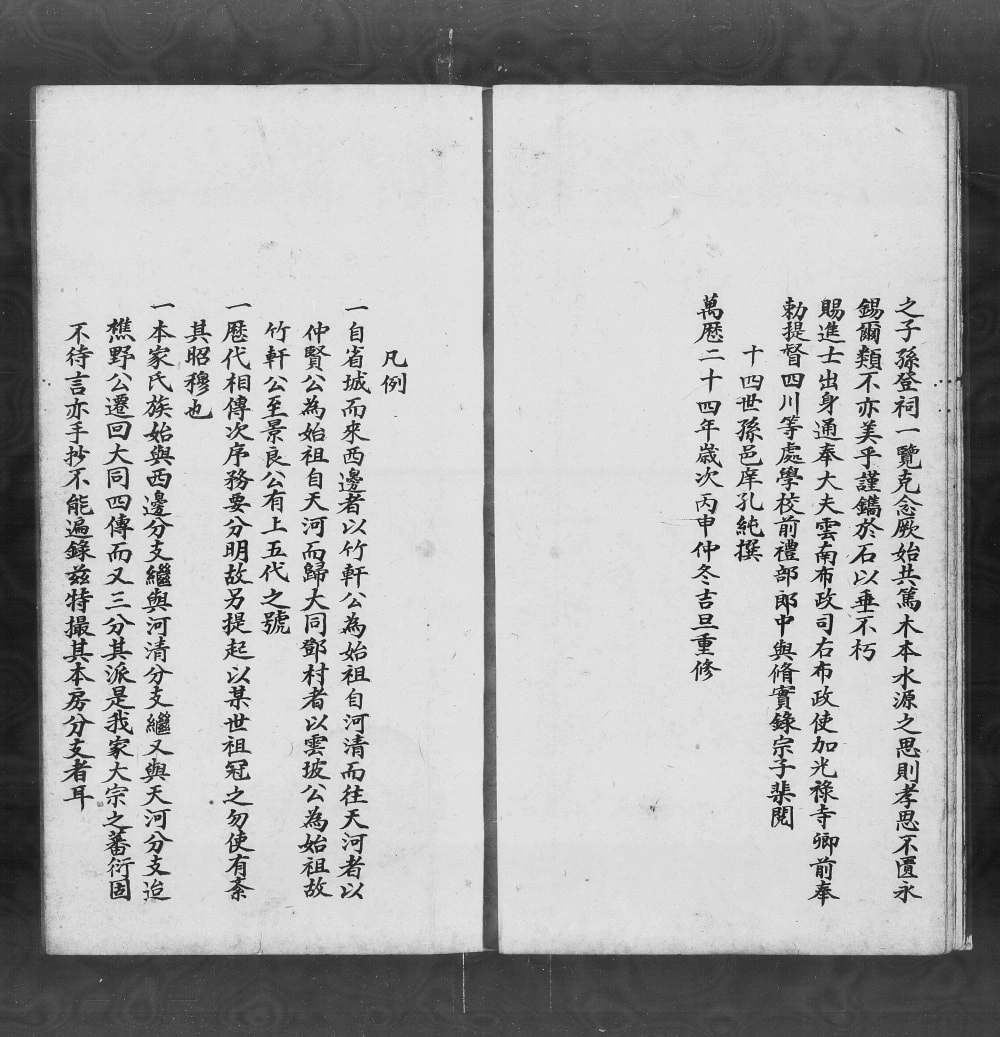 之子孫登祠一覽克念厥始共篤木本水源之思則孝思不匱永
錫爾類不亦美乎謹鐫於石以垂不朽
賜進士出身通奉大夫雲南布政司右布政使加光祿寺卿前奉
勅提督四川等處學校前禮部郎中與脩實錄宗子棐閱
十四世孫邑庠孔純撰
萬歷二十四年歲次丙申仲冬吉旦重修
凡例
一自省城而來西邊者以竹軒公為始祖自河清而往天河者以
仲賢公為始祖自天河而歸大同鄧村者以雲坡公為始祖故
竹軒公至景良公有上五代之號
一歷代相傳次序務要分明故另提起以某世祖冠之勿使有紊
其昭穆也
一本家氏族始與西邊分支繼與河清分支繼又與天河分支迨
樵野公遷回大同四傳而又三分其派是我家大宗之蕃衍固
不待言亦手抄不能遍錄茲特撮其本房分支者耳